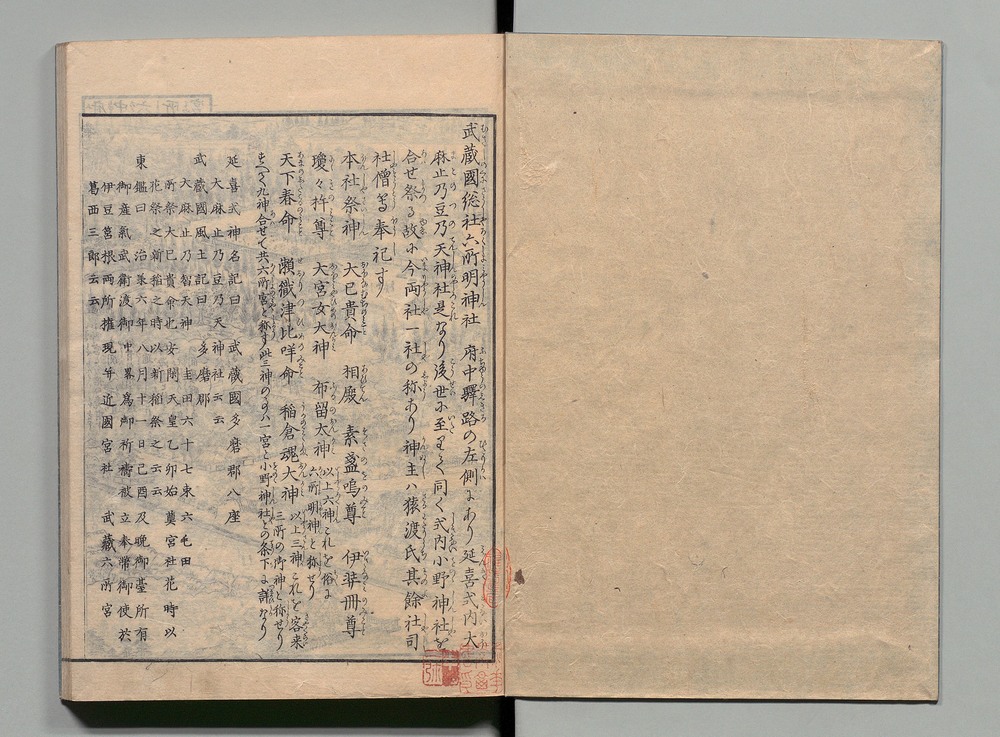 武蔵國総社六所明神社　府中驛路の左側にあり延喜式内大
麻止乃豆乃天神社是なり後世に至りて同く式内小野神社を
合せ祭る故に今両社一社の称あり神主ハ猿渡氏其餘社司
社僧等奉祀す
本社祭神　大己貴命　相殿　素盞嗚尊　伊弉冊尊
瓊々杵尊　大宮女大神　布留大神以上六神これを俗に六所明神と称せり
天下春命　瀬織津比咩命　稲倉魂大神以上三神これを客来三所の御神と称せり
すへて九神合せて共六所宮と称す此三神の事ハ一宮と小野神社との条下に詳なり
延喜式神名記曰　武蔵國多磨郡八座
大麻止乃豆乃天神社云云
武蔵國風土記曰　多磨郡
大麻止乃智天神　圭田六十七束六毛田
所祭大己貴命也安閑天皇乙卯始奠宮社花時以
花祭之新稲之時以新稲祭之云云
東鑑曰　治承六年八月十一日己酉及晩御臺所有
御産氣武衛渡御中畧為御祈祷被立奉幣御使於
伊豆筥根両所権現并近國宮社　武蔵六所宮
葛西三郎云云